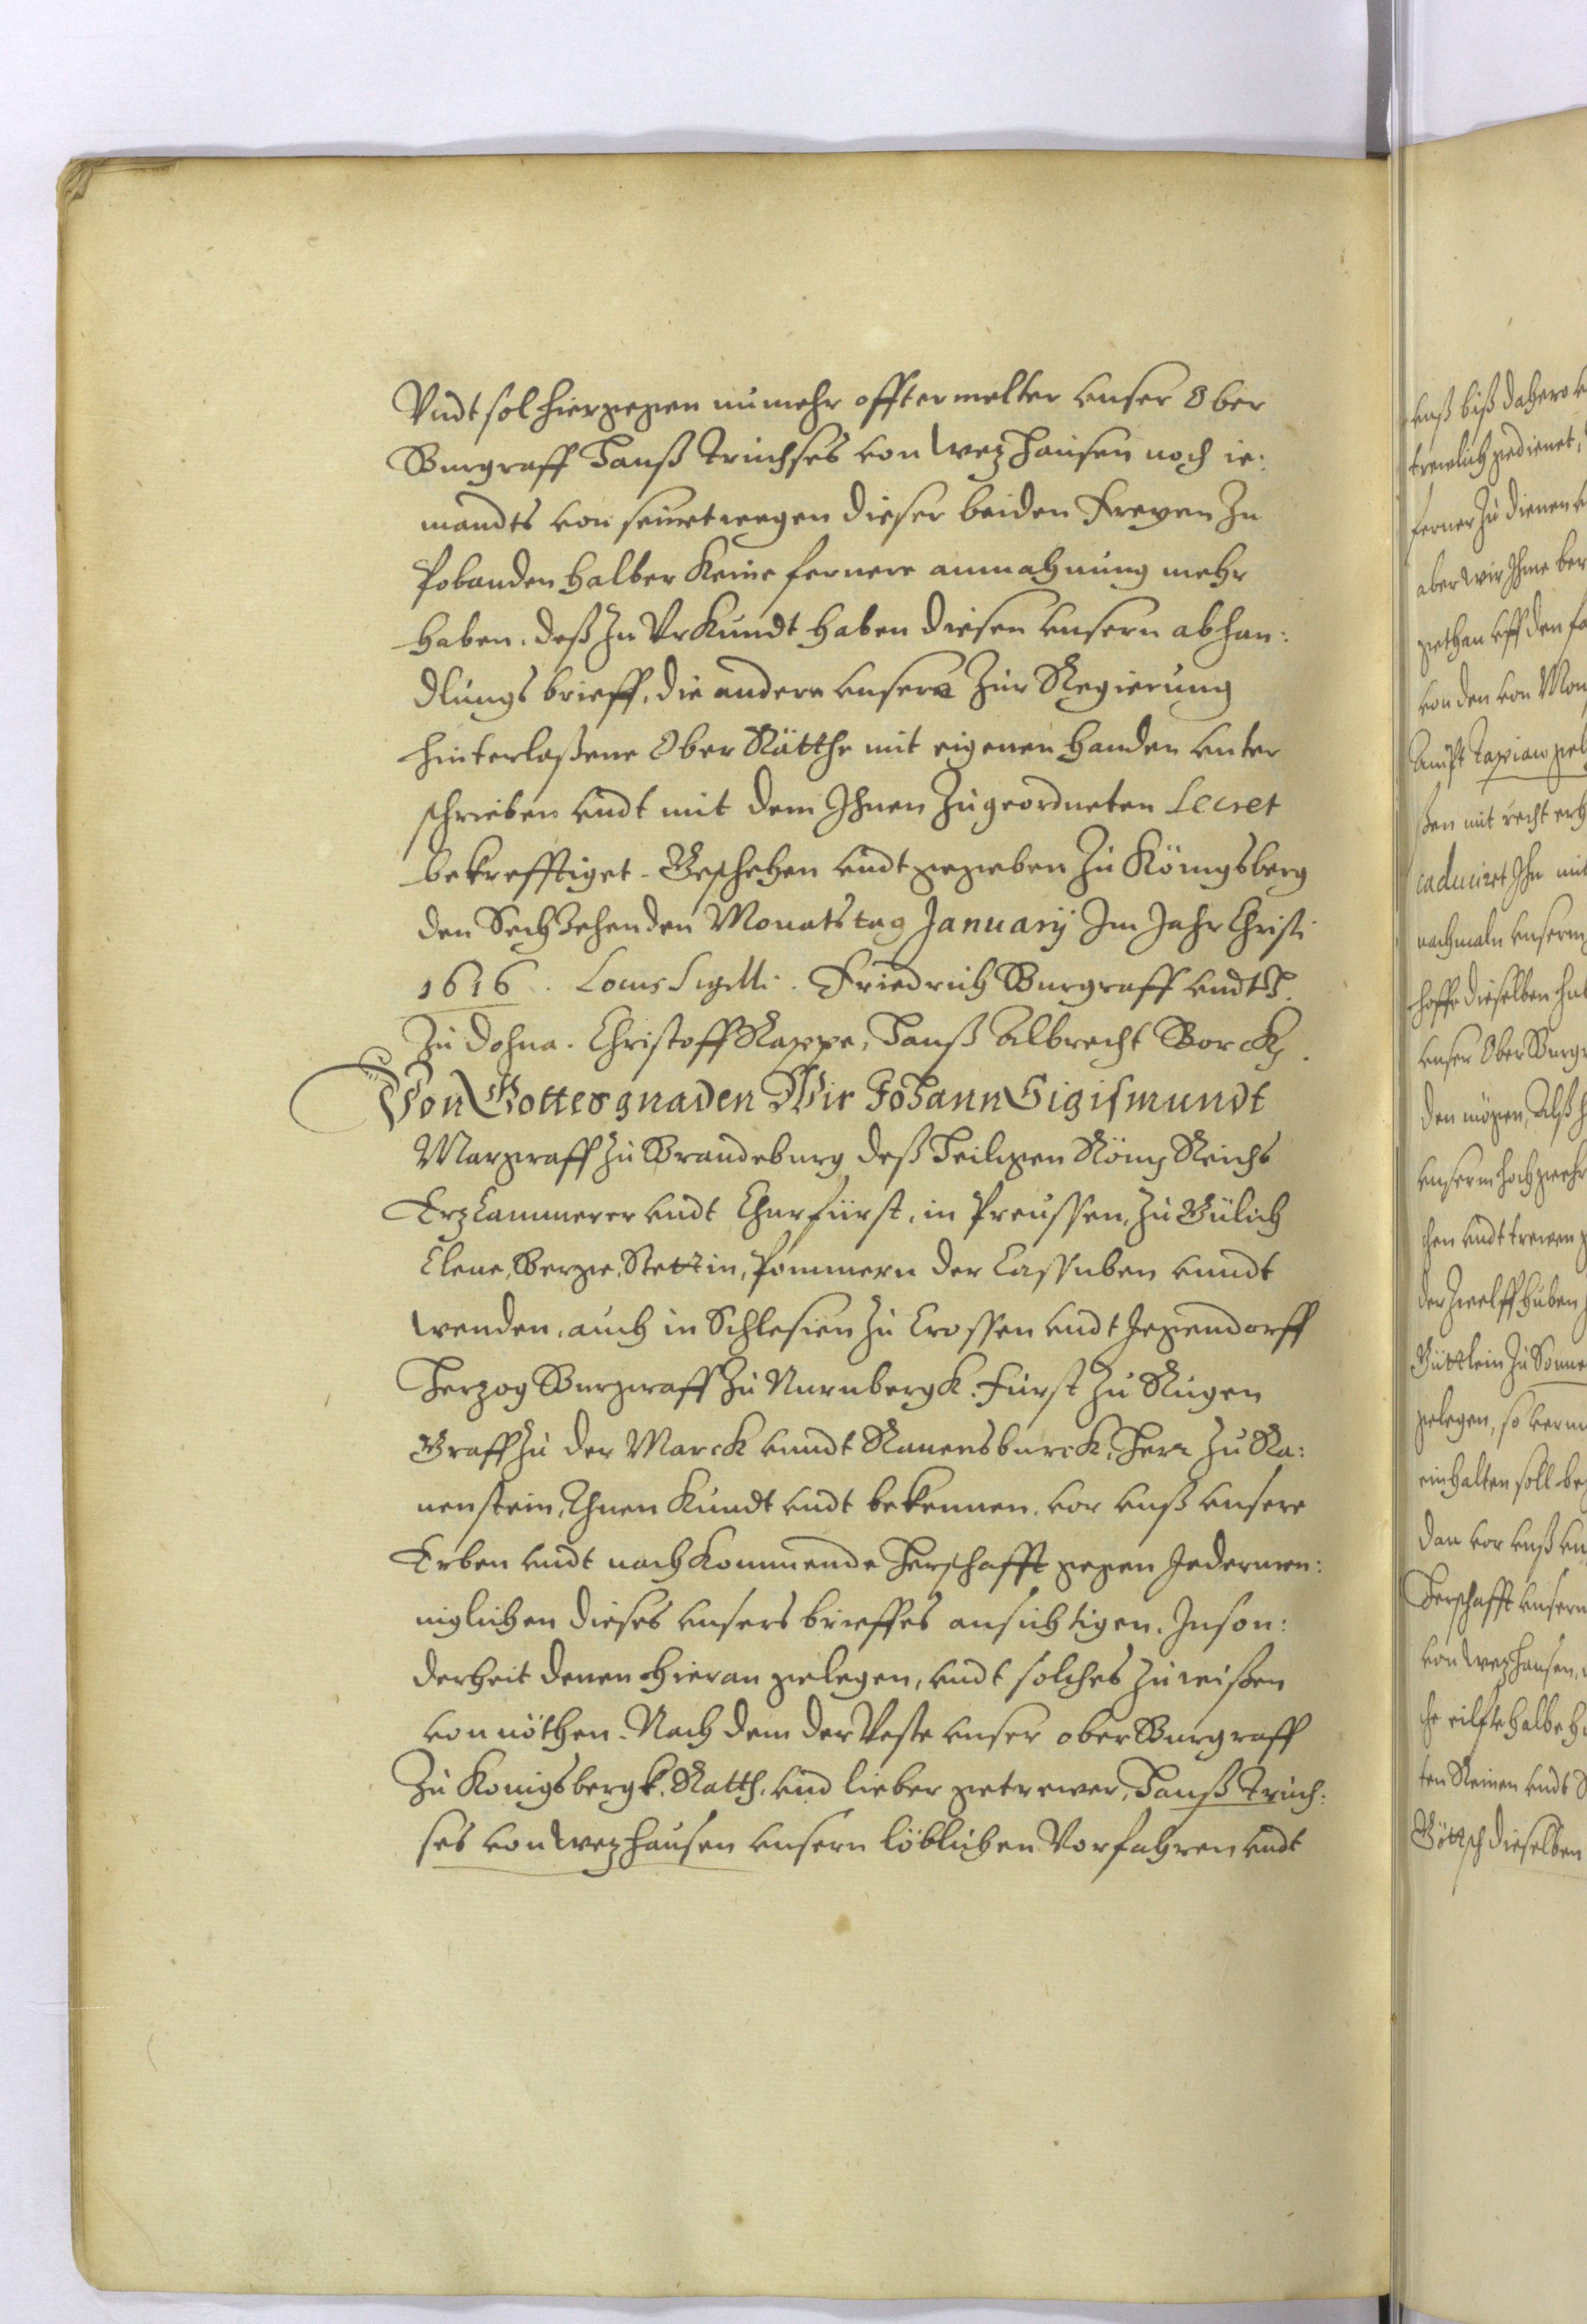 Vndt sol hiergegen nu mehr offtermelter vnser Ober
Burgraff Hanß Truchses von Wezhausen noch ie:
mandts von seinetwegen dieser beiden Freyen Zu
Pobanden halber keine fernere anmahnung mehr
haben. deß zu Vrkundt haben diesen vnsern abhan:
dlungs brieff, die andere vnsere Zur Regierung
hinterlaßene Ober Räthe mit eigenen handen vnter
schrieben vndt mit dem Ihnen Zugeordneten Secret
bekrefftiget. Geschehen vndt gegeben Zu Königsberg
den Sechzehenden Monatstag January Im Jahr Christi
1616. Locus Sigilli. Friedrich Burgraff vndt H.
Zu Dohna. Christoff Rappe, Hanß Albrecht Borck.
Von Gottes gnaden Wir Johann Sigismundt
Marggraff zu Brandeburg deß Heiligen Röm: Reichs
Erz Cammerer vndt Churfürst, in Preussen, zu Gülich
Cleue, Berge, Stettin, Pommern der Cassuben vundt
Wenden, auch in Schlesien zu Crossen vndt Jegendorff
Herzog Burggraff zu Nurnbergk. Fürst zu Rugen
Graff zu der Marck vundt Rauensburck, Herr zu Ra:
uenstein, Thuen kundt vndt bekennen, vor vnß vnsere
Erben vndt nach kommende Herschafft gegen Jedermen:
niglichen dieses vnsers brieffes ansichtigen. Inson:
derheit denen hieran gelegen, vndt solches zu wißen
von nöthen. Nach dem der Veste vnser ober Burgraff
Zu Konigsbergk. Rath. vnd lieber getrewer, Hanß Truch:
ses von Wezhausen vnsern löblichen Vorfahren vndt
vnß biß dahero
trewlich gedienet,
ferner zu dienen
aber wir Ihme
gethan vff den
von den von
Ampt Tapiaw
ßen mit recht
caduciret Ihn mit
nachmaln vnserm
hoffe dieselben
vnser Ober
den mögen, Alß
vnserm hoch
chen vndt trewen
der Zwelff huben
Güttlein zu
gelegen, so
einhalten soll
dan vor vnß
Herschafft vnserm
von Wezhausen,
che eilfte halbe
ten Reinen vndt
Göttsch dieselben